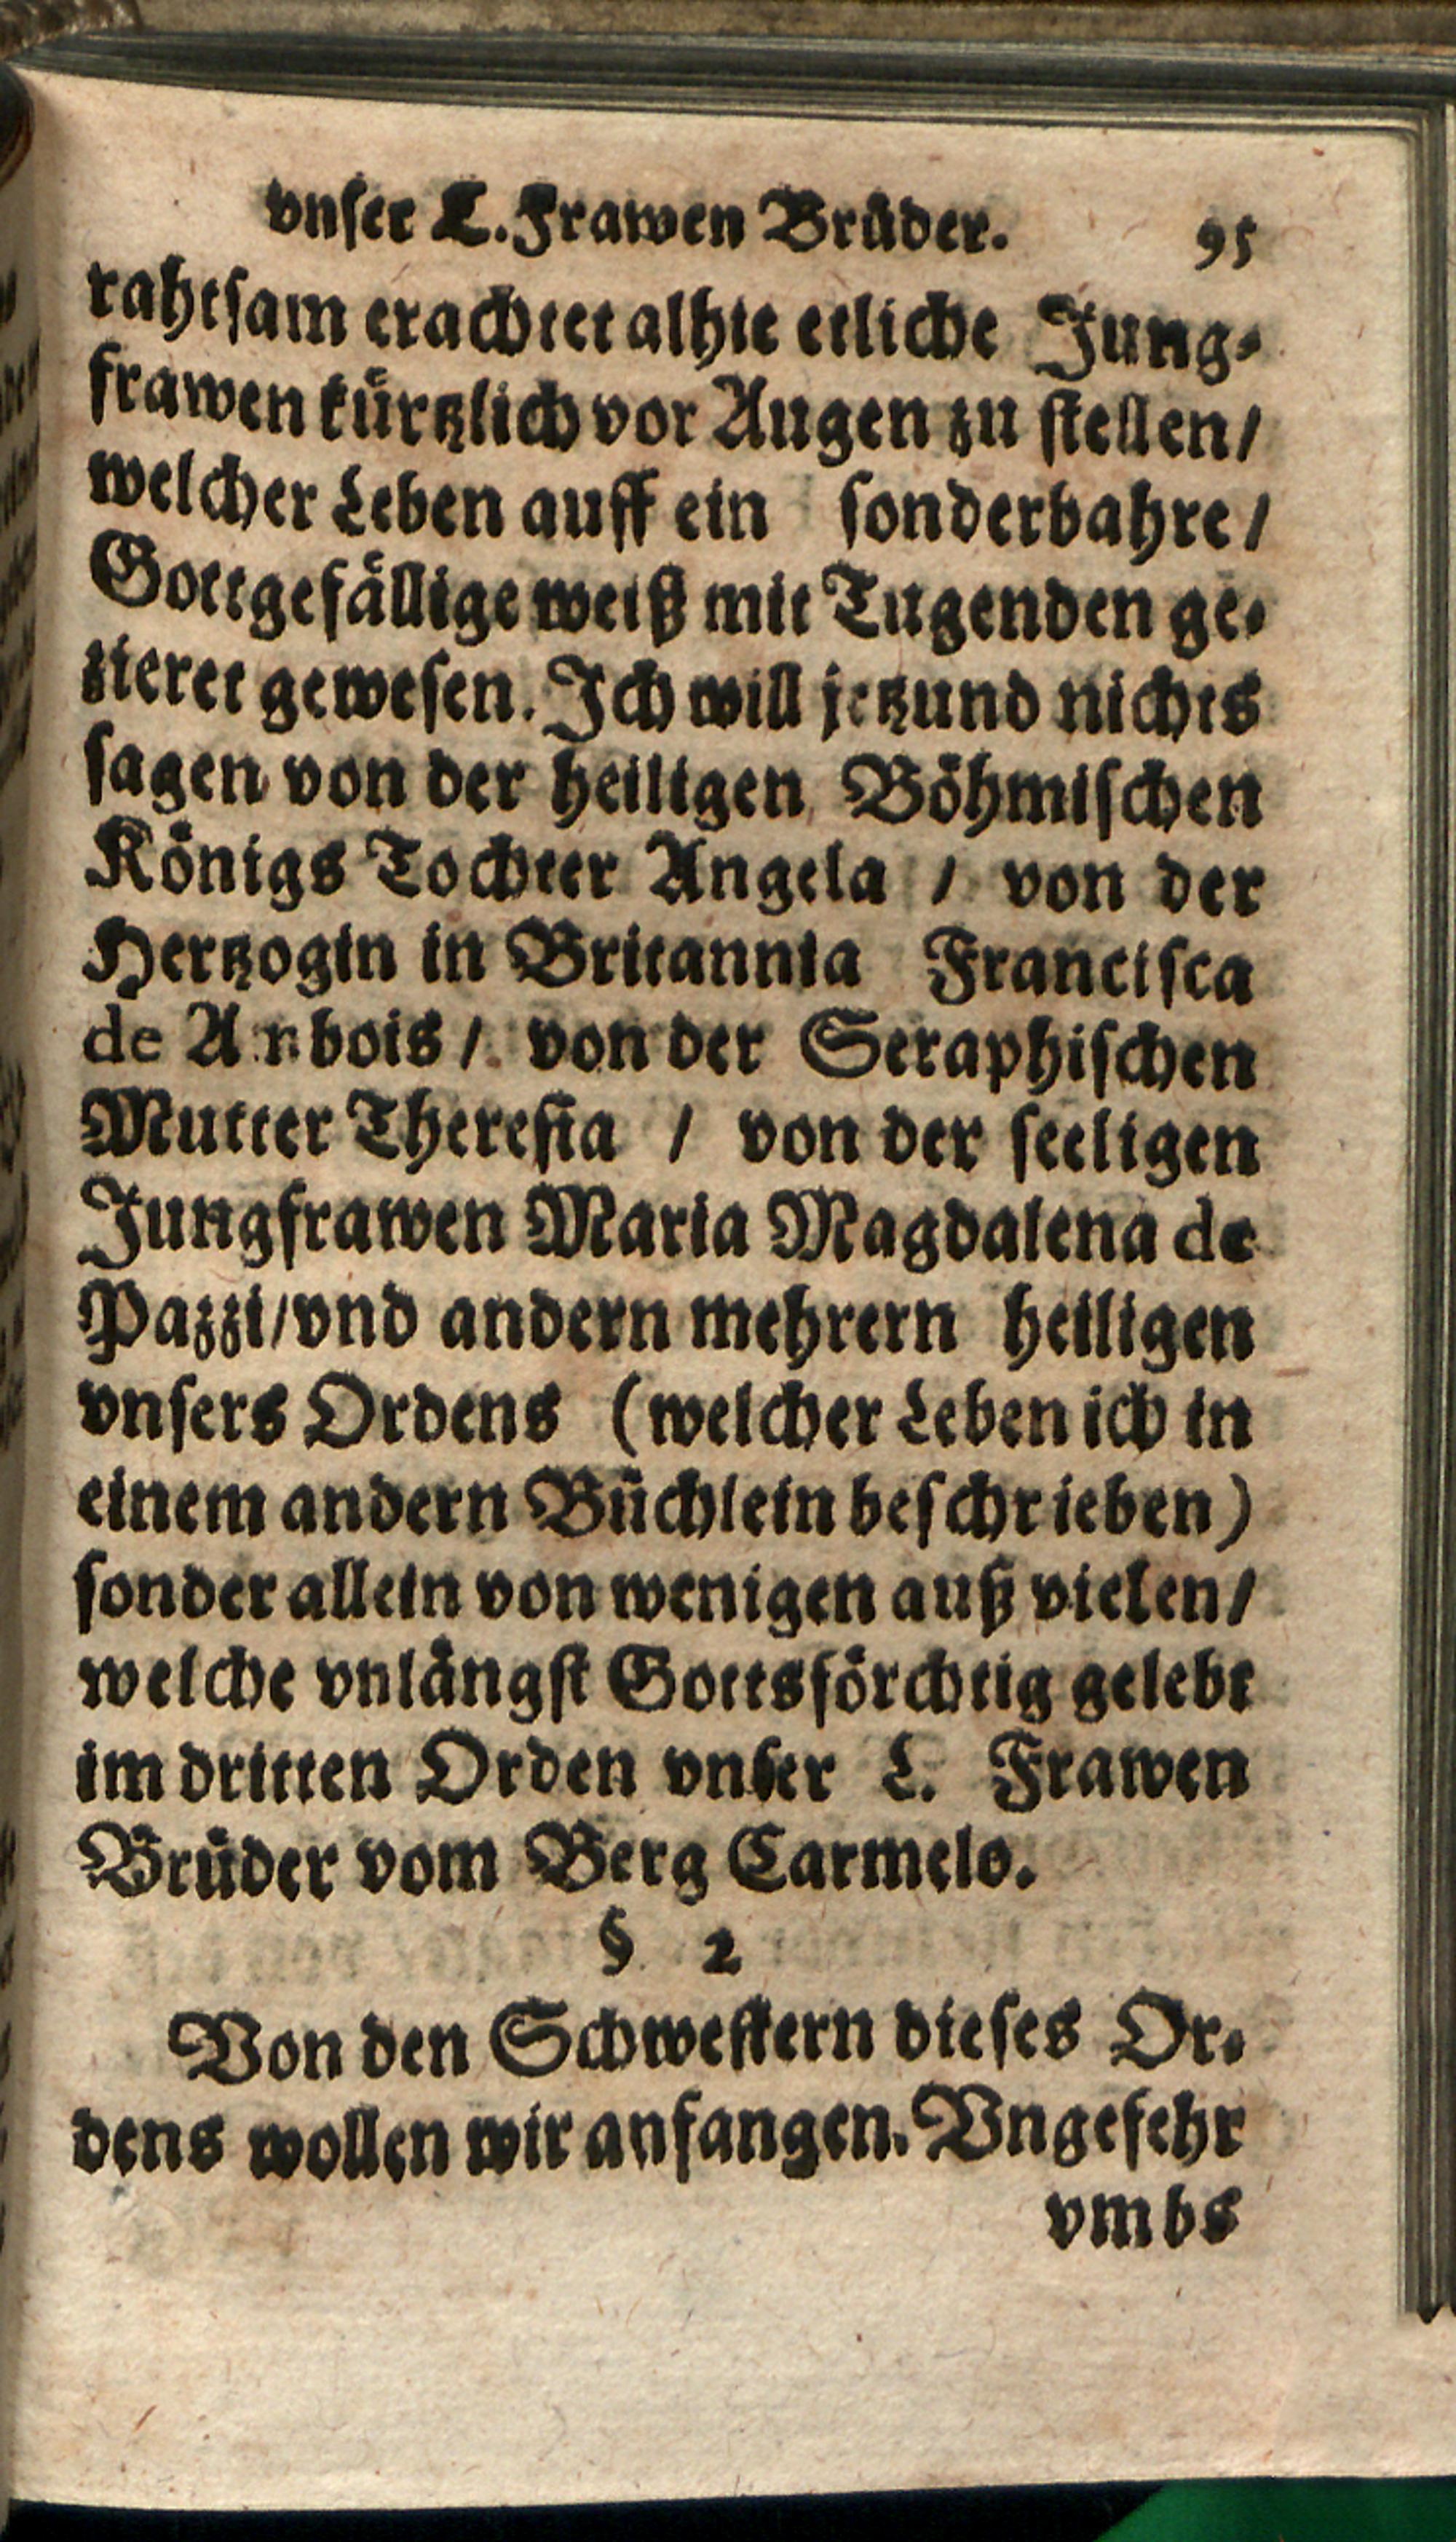 vnſer L. Frawen Bruͤder. 95
rahtſam erachtet alhie etliche Jung⸗
frawen kuͤrtzlich vor Augen zu ſtellen/
welcher Leben auff ein ſonderbahre/
Gottgefaͤllige weiß mit Tugenden ge⸗
zieret geweſen. Jch will jetzund nichts
ſagen von der heiligen Boͤhmiſchen
Koͤnigs Tochter Angela / von der
Hertzogin in Britannia Franciſca
de / von der Seraphiſchen
Mutter Thereſia / von der ſeeligen
Jungfrawen Maria Magdalena de
Pazzi/vnd andern mehrern heiligen
vnſers Ordens (welcher Leben ich in
einem andern Buͤchlein beſchrieben)
ſonder allein von wenigen auß vielen/
welche vnlaͤngſt Gottsfoͤrchtig gelebt
im dritten Orden vnſer L. Frawen
Bruͤder vom Berg Carmelo.
§ 2
Von den Schweſtern dieſes Or⸗
dens wollen wir anfangen. Vngefehr
vmbs